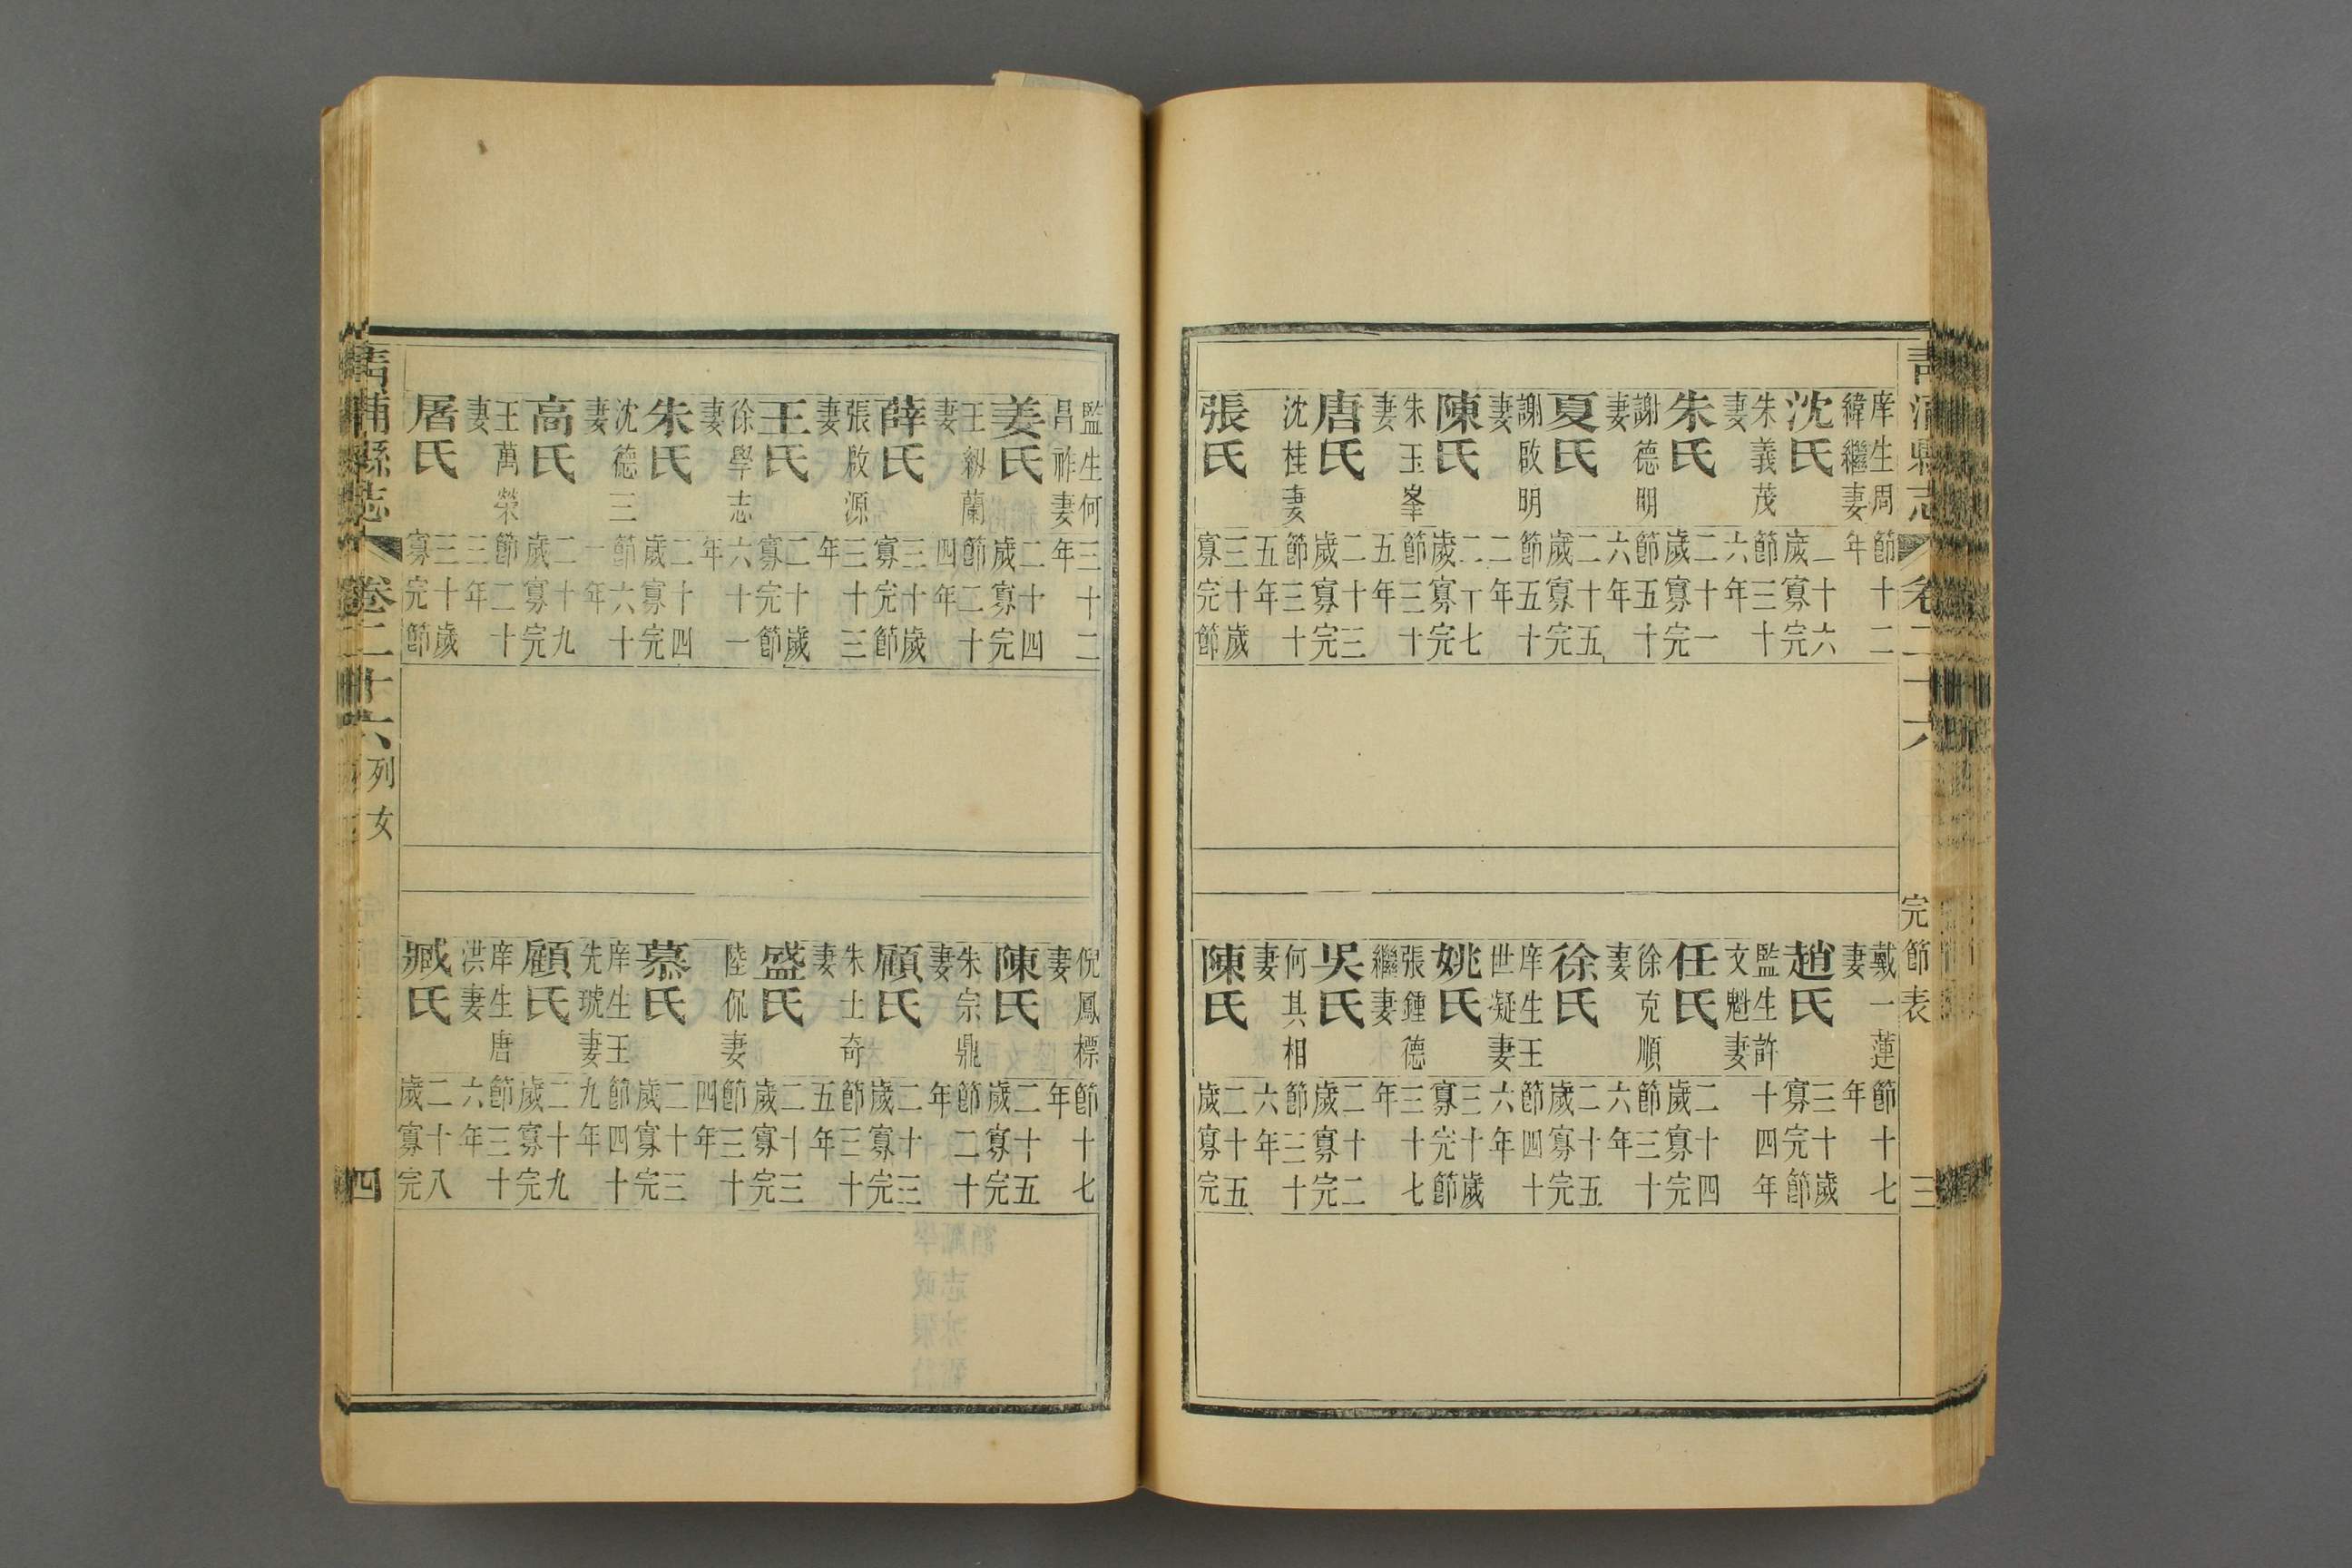 青浦縣志 卷二十六
完節表
三
庠生周
緯繼妻
節十二
年
沈氏
二十六
歲寡完
朱義茂
妻
節三十
六年
朱氏
二十一
歲寡完
謝德明
妻
節五十
六年
夏氏
二十五
歲寡完
謝啟明
妻
節五十
二年
陳氏
二十七
歲寡完
朱玉峯
妻
節三十
五年
唐氏
二十三
歲寡完
沈桂妻
節三十
五年
張氏
三十歲
寡完節
戴一蓮
妻
節十七
年
趙氏
三十歲
寡完節
監生許
文魁妻
十四年
任氏
二十四
歲寡完
徐克順
妻
節三十
六年
徐氏
二十五
歲寡完
庠生王
世凝妻
節四十
六年
姚氏
三十歲
寡完節
張鍾德
繼妻
三十七
年
吳氏
二十二
歲寡完
何其相
妻
節三十
六年
陳氏
二十五
歲寡完
監生何
昌祚妻
三十二
年
姜氏
二十四
歲寡完
王紉蘭
妻
節二十
四年
薛氏
三十歲
寡完節
張啟源
妻
三十三
年
王氏
二十歲
寡完節
徐學志
妻
六十一
年
朱氏
二十四
歲寡完
沈德三
妻
節六十
一年
高氏
二十九
歲寡完
王萬榮
妻
節二十
三年
屠氏
三十歲
寡完節
倪鳳標
妻
節十七
年
陳氏
二十五
歲寡完
朱宗鼎
妻
節二十
年
顧氏
二十三
歲寡完
朱士奇
妻
節三十
五年
盛氏
二十三
歲寡完
陸侃妻
節三十
四年
慕氏
二十三
歲寡完
庠生王
先琥妻
節四十
九年
顧氏
二十九
歲寡完
庠生唐
洪妻
節三十
六年
臧氏
二十八
歲寡完
青浦縣志 卷二十六 列女
四